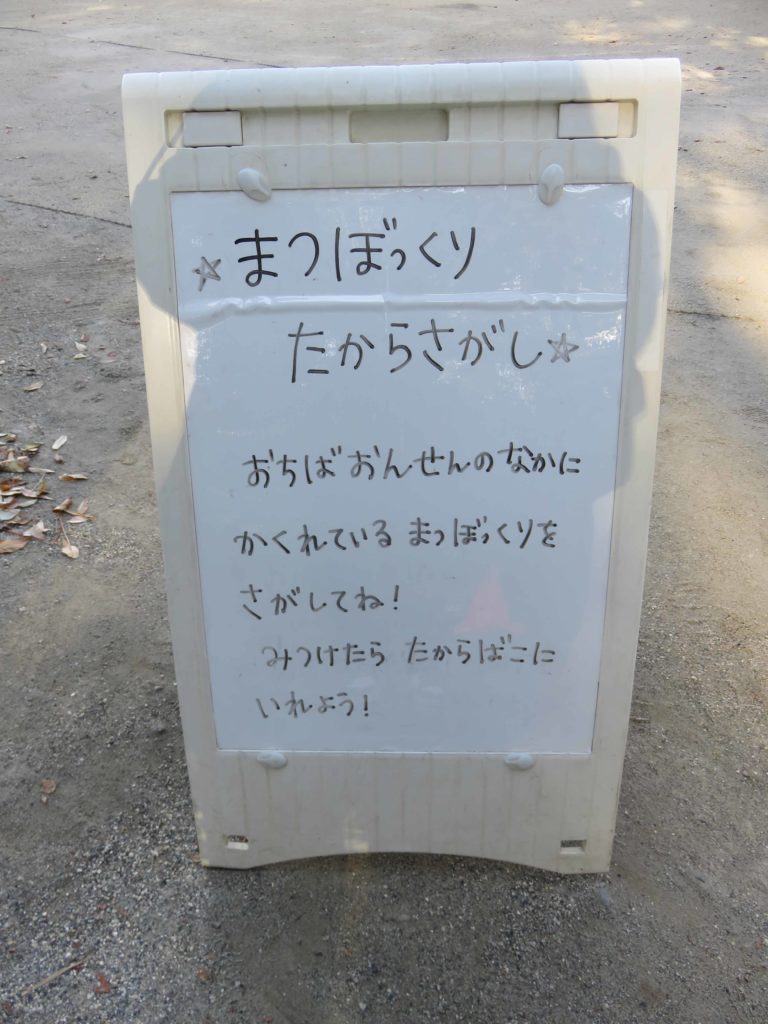 ☆まつぼっくり
たからさがし☆
おちばおんせんのなかに
かくれている まつぼっくりを
さがしてね!
みつけたら たからばこに
いれよう!